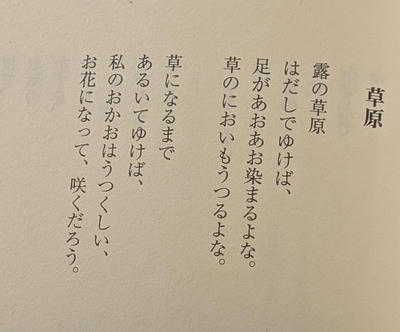 草原
露の草原
はだしでゆけば、
足があおあお染まるよな。
草のにおいもうつるよな。
草になるまで
あるいてゆけば、
私のおかおはうつくしい、
お花になって、咲くだろう。